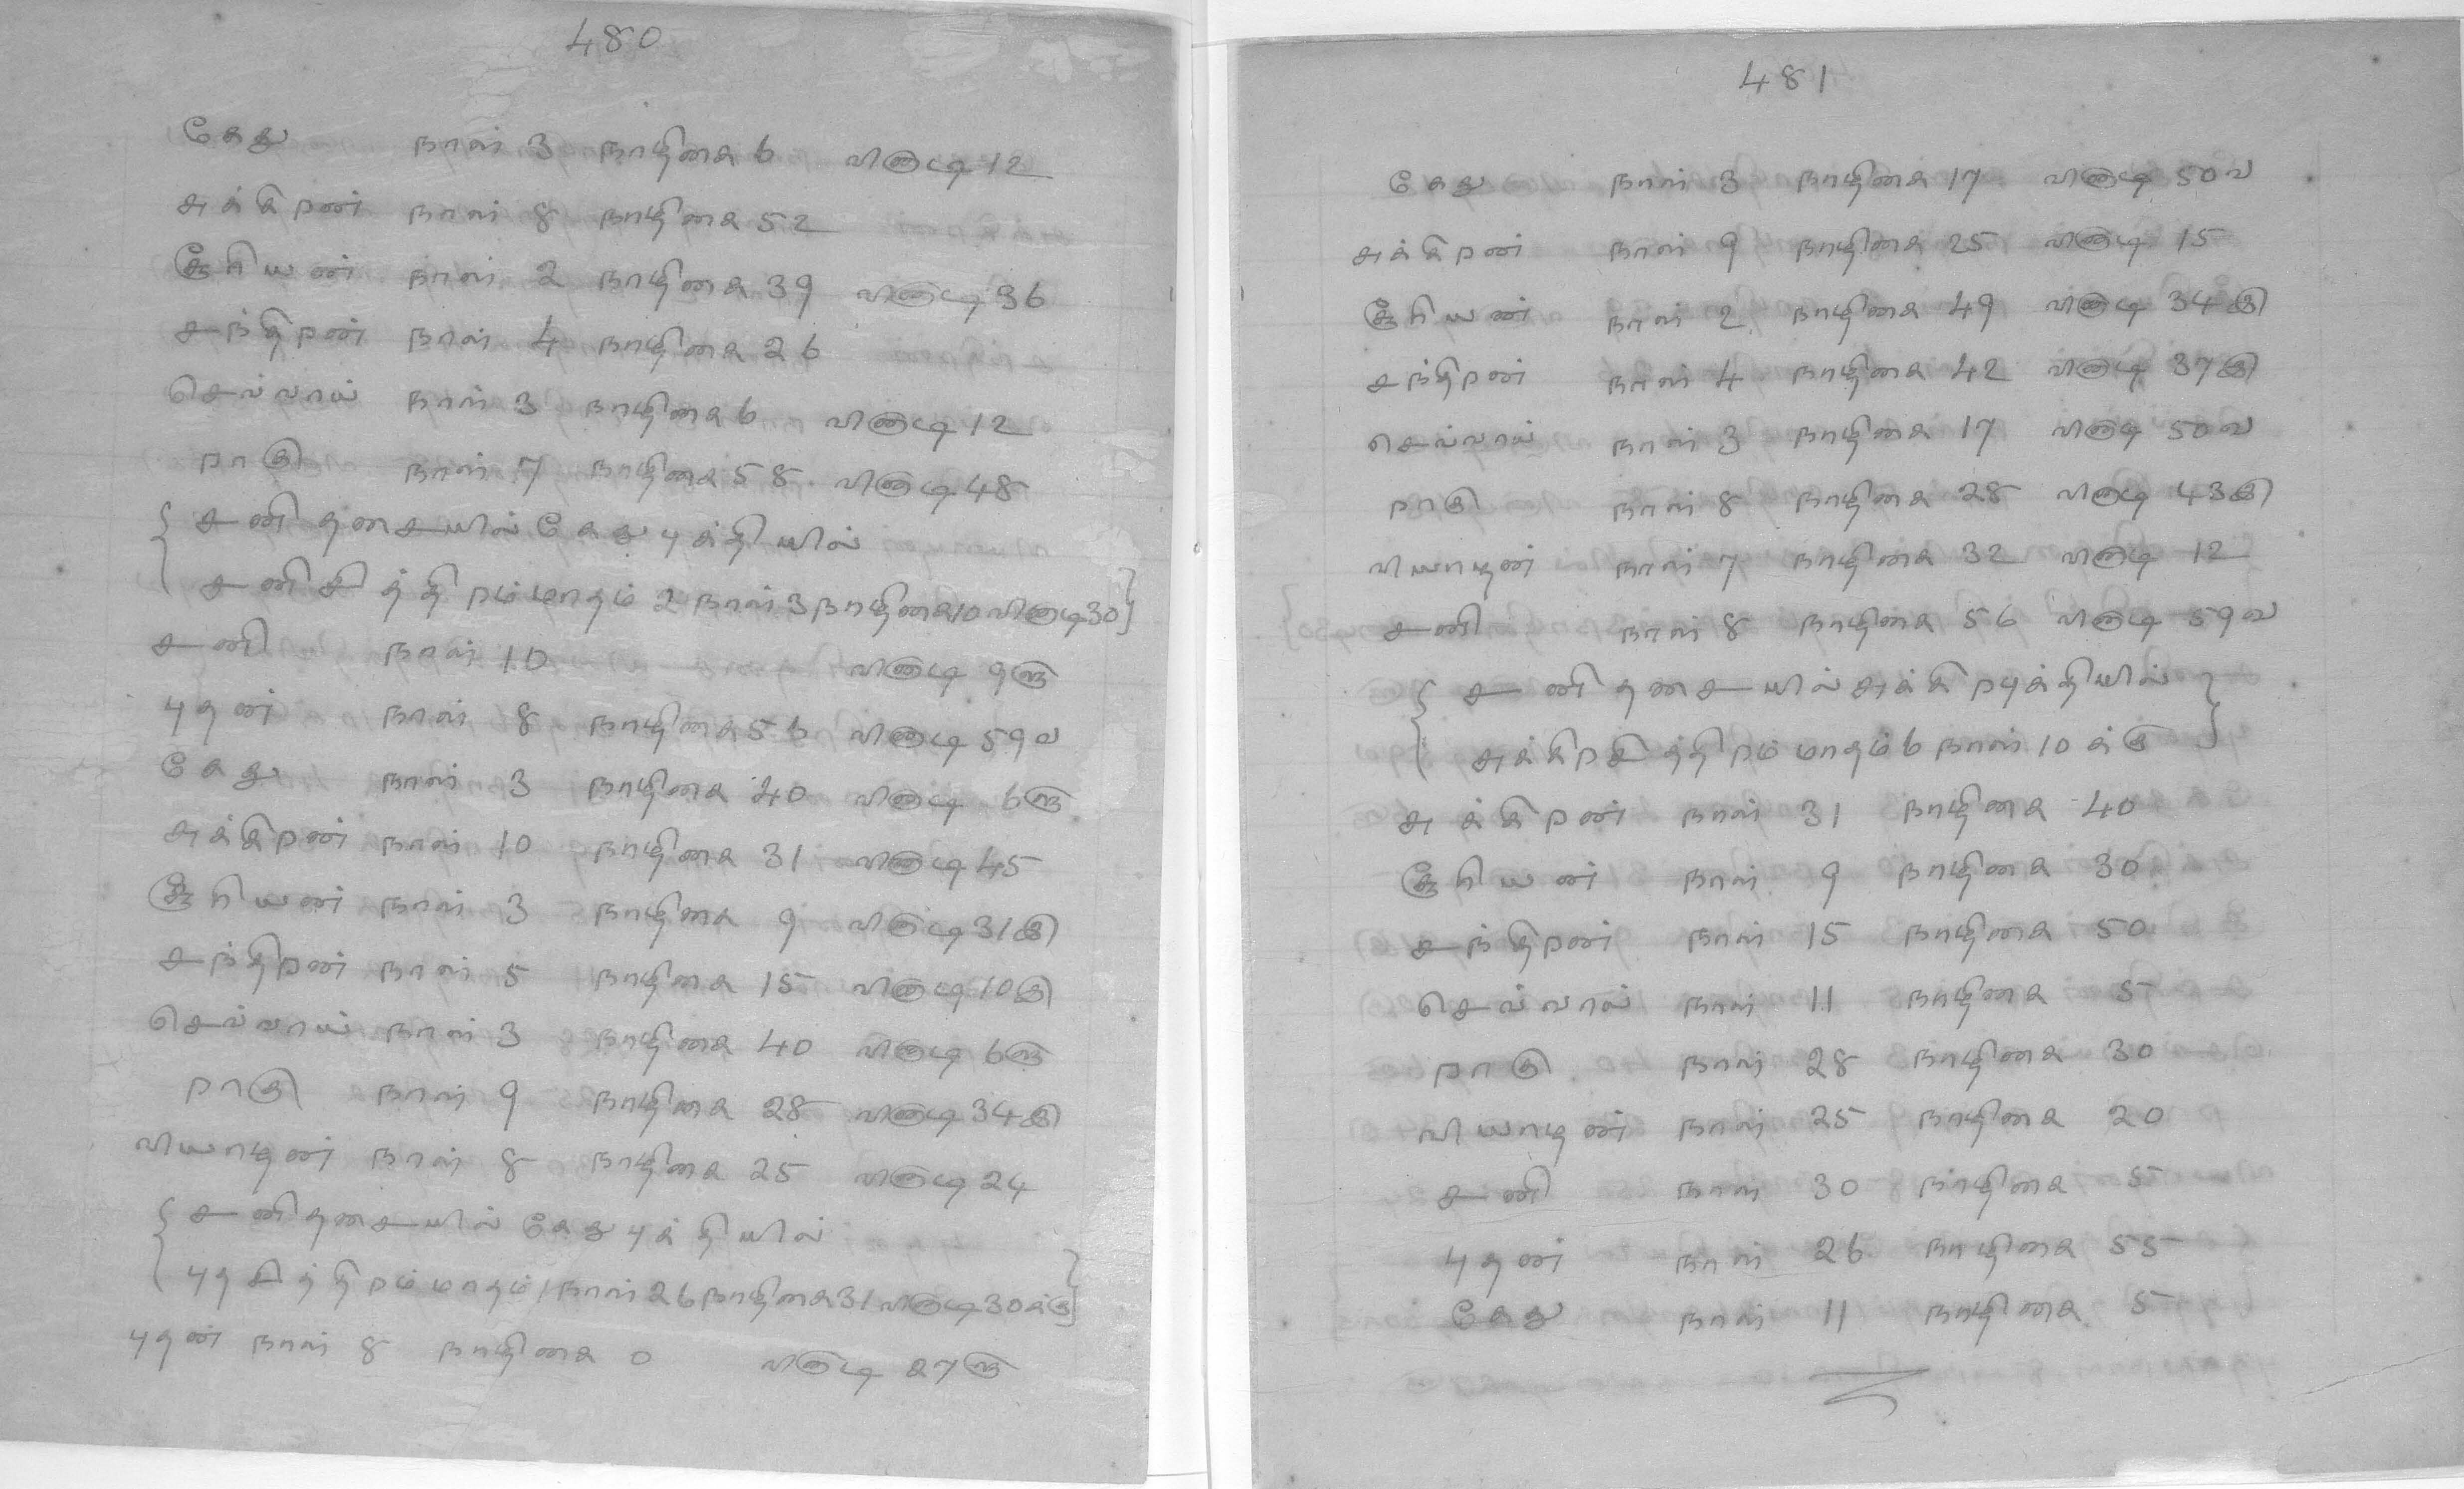 480
கேது நாள் 3 நாழிகை 6 விகடி 12
சுக்கிறன் நாள் 8 நாழிகை 52
சூரியன் நாள் 2 நாழிகை 39 விகடி 36
சந்திறன் நாள் 4 நாழிகை 26
செவ்வாய் நாள் 3 நாழிகை 6 விகடி 12
றாகு நாள் 7 நாழிகை 58 விகடி 48
சனி தசையில் கேது புக்தியில்
சனி சித்திறம் மாதம் 2 நாள் 3 நாழிகை 10 விகடி 30
சனி நாள் 10 விகடி 9௫
புதன் நாள் 8 நாழிகை 56 விகடி 59வ
கேது நாள் 3 நாழிகை 40 விகடி 6௫
சுக்கிறன் நாள் 10 நாழிகை 31 விகடி 45
சூரியன் நாள் 3 நாழிகை 9 விகடி 31இ
சந்திறன் நாள் 5 நாழிகை 15 விகடி 10இ
செவ்வாய் நாள் 3 நாழிகை 40 விகடி 6௫
றாகு நாள் 9 நாழிகை 28 விகடி 34இ
வியாழன் நாள் 8 நாழிகை 25 விகடி 24
சனி தசையில் கேது புக்தியில்
புத சித்திறம் மாதம் 1 நாள் 26 நாழிகை 31 விகடி 30க்கு
புதன் நாள் 8 நாழிகை 0 விகடி 27௫
481
கேது நாள் 3 நாழிகை 17 விகடி 50வ
சுக்கிறன் நாள் 9 நாழிகை 25 விகடி 15
சூரியன் நாள் 2 நாழிகை 49 விகடி 34இ
சந்திறன் நாள் 4 நாழிகை 42 விகடி 37இ
செவ்வாய் நாள் 3 நாழிகை 17 விகடி 50வ
றாகு நாள் 8 நாழிகை 28 விகடி 43இ
வியாழன் நாள் 7 நாழிகை 32 விகடி 12
சனி நாள் 8 நாழிகை 56 விகடி 59வ
சனி தசையில் சுக்கிற புக்தியில்
சுக்கிற சித்திறம் மாதம் 6 நாள் 10 க்கு
சுக்கிறன் நாள் 31 நாழிகை 40
சூரியன் நாள் 9 நாழிகை 30
சந்திறன் நாள் 15 நாழிகை 50
செவ்வாய் நாள் 11 நாழிகை 5
றாகு நாள் 28 நாழிகை 30
வியாழன் நாள் 25 நாழிகை 20
சனி நாள் 30 நாழிகை 5
புதன் நாள் 26 நாழிகை 55
கேது நாள் 11 நாழிகை 5